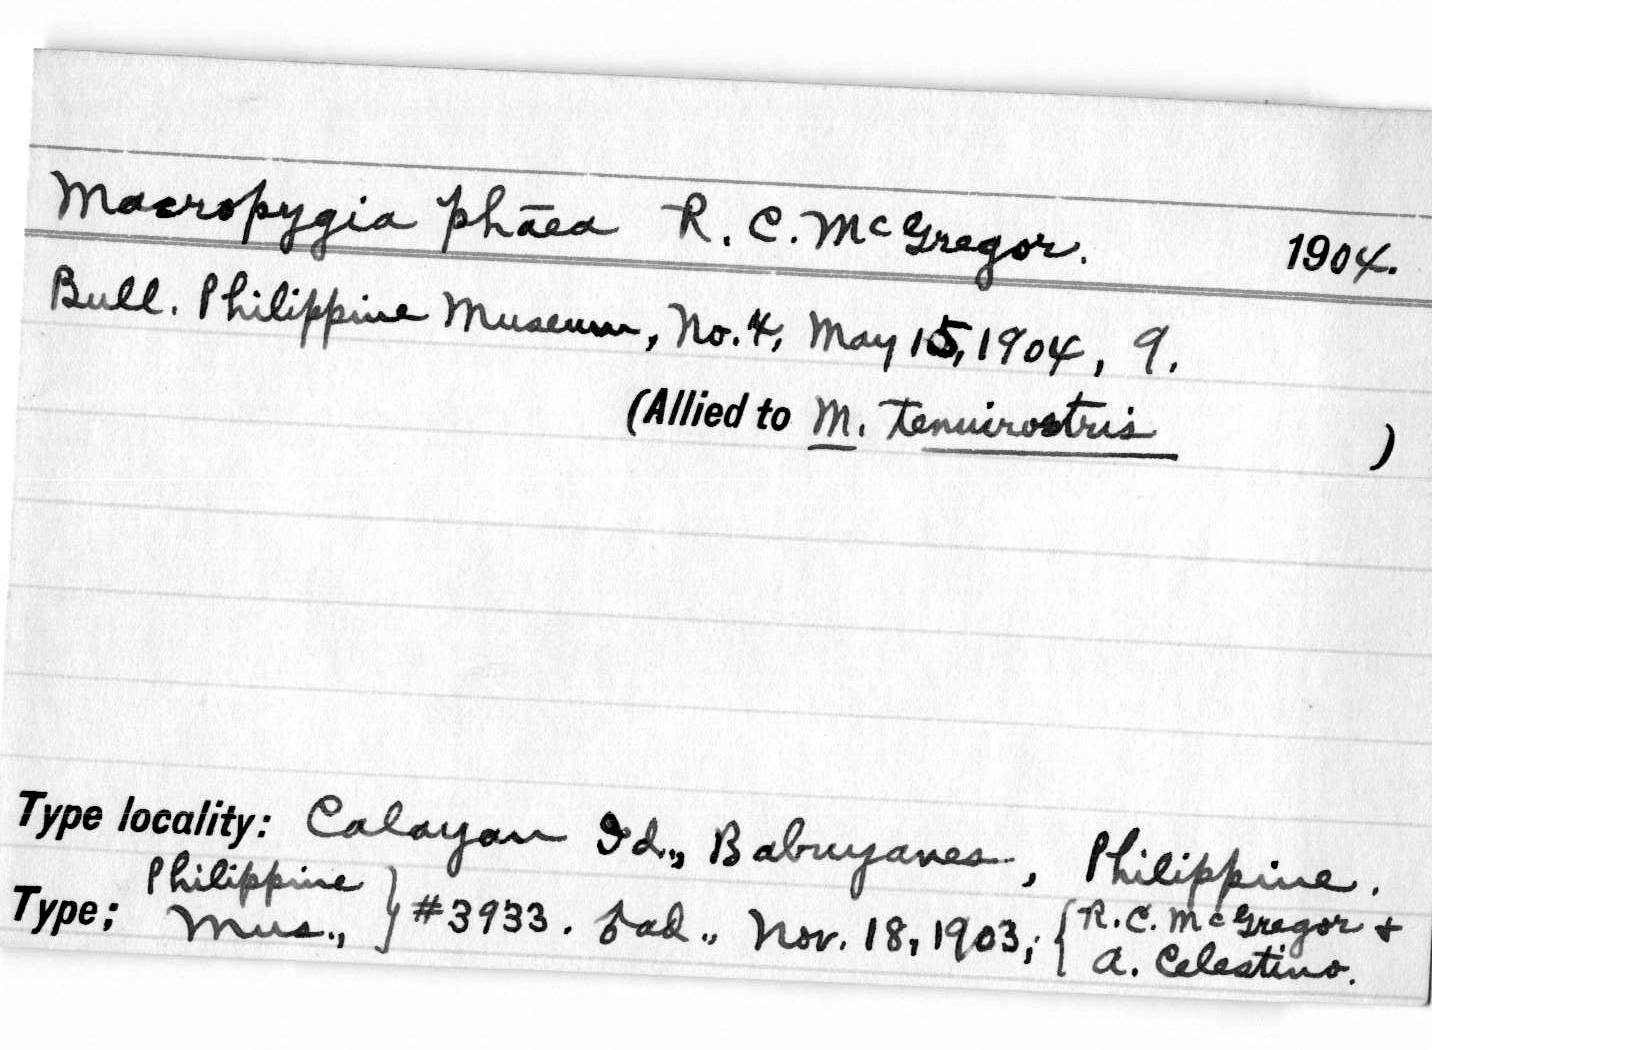 Macropygia phāea R. C. McGregor. 1904.
Bull. Philippine Museum, No. 4, May 15, 1904, 9.
(Allied to M. tenuirostris )
Type locality: Calayan Id., Babuyanes, Philippine.
Type: Philippine Mus., } #3933. ad., Nov. 18, 1903; { R. C. McGregor + A. Celestino.